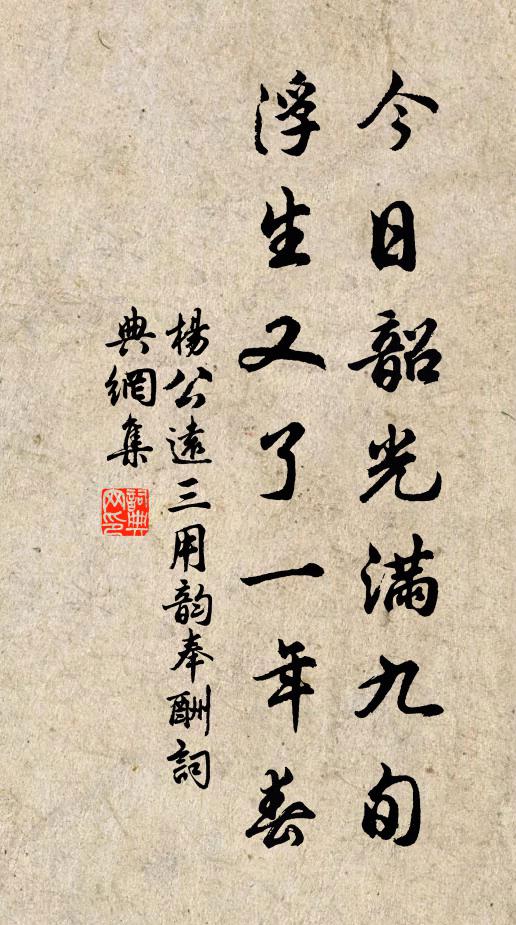 今日韶光满九旬
浮生又了一年春
楊公遠三用韵奉酬詞
典網集
詞典网印